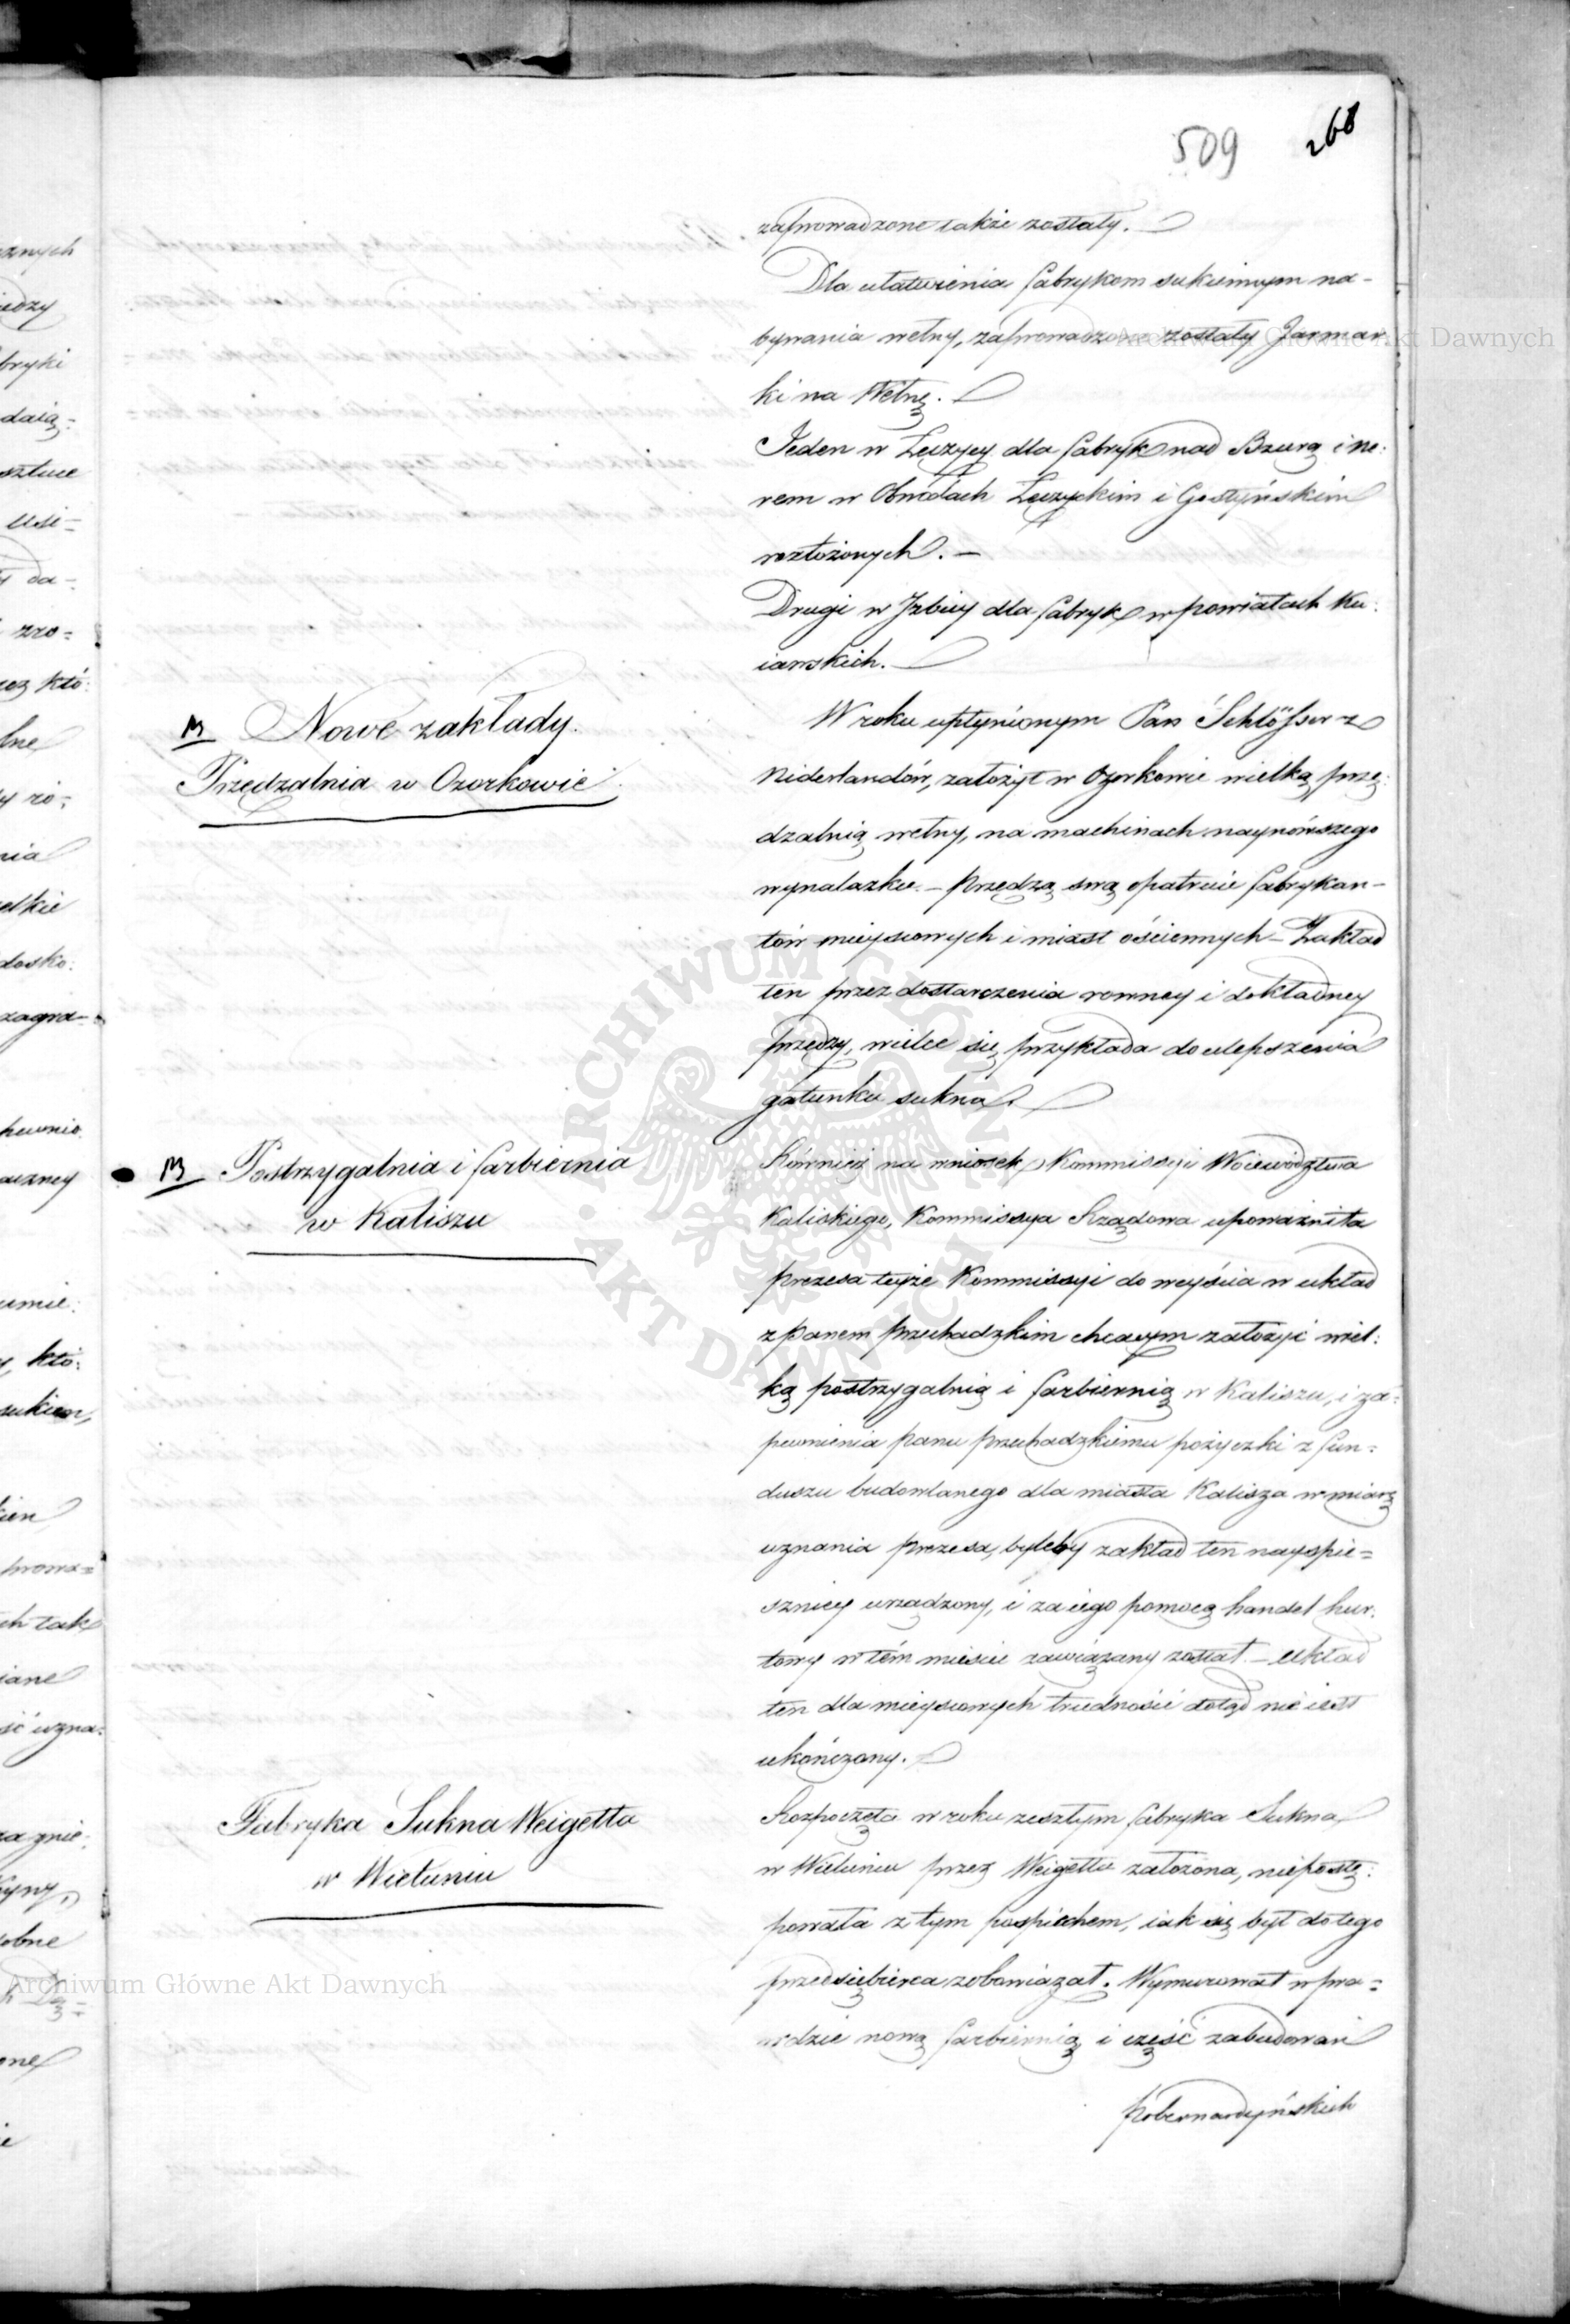 509
268
zaprowadzone także zostały.
Dla ułatwienia fabrykom sukiennym na-
bywania wełny, zaprowadzone zostały Jarmar
ki na Wełnę.
Jeden w Łęczycy dla fabryk nad Bzurą i Ne:
rem w Obwodach Łęczyckim i Gostyńskim
rozłożonych. –
Drugi w Izbicy dla fabryk w powiatach Ku:
iawskich.
Nowe zakłady.
Przędzalnia w Ozorkowie
W roku upłynionym Pan Schlösser z
Niderlandów, założył w Ozorkowie wielką przę:
dzalnią wełny, na machinach naynowszego
wynalazku. – Przędzą swą opatruie fabrykan-
tów mieyscowych i miast ościennych – Zakład
ten przez dostarczenia rowney i dokładney
przędzy, wielce się przykłada do ulepszenia
gatunku sukna.
Postrzygalnia i farbiernia
w Kaliszu
Również na wniosek Kommissyi Woiewództwa
Kaliskiego, Kommissya Rządowa upoważniła
prezesa teyże Kommissyi do weyścia w układ
z panem Przechadzkim chcącym założyć wiel:
ką postrzygalnią i farbiernią w Kaliszu, i za-
pewnienia panu Przechadzkiemu pożyczki z fun=
duszu budowlanego dla miasta Kalisza w miarę
uznania prezesa, byleby zakład ten nayspie=
szniey urządzony, i za iego pomocą handel hur:
towy w tém mieście zawiązany został – układ
ten dla mieyscowych trudności dotąd nie iest
ukończony.
Fabryka Sukna Weigelta
w Wieluniu
Rozpoczęta w roku zeszłym fabryka Sukna
w Wieluniu przez Weigelta założona, niepostę:
powała z tym pospiechem, iak się był do tego
przedsiębierca zobowiązał. Wymurował wpra=
wdzie nową farbiernią i część zabudowań
pobernardyńskich
Archiwum Główne Akt Dawnych
Archiwum Główne Akt Dawnych
ARCHIWUM GŁÓWNE AKT DAWNYCH